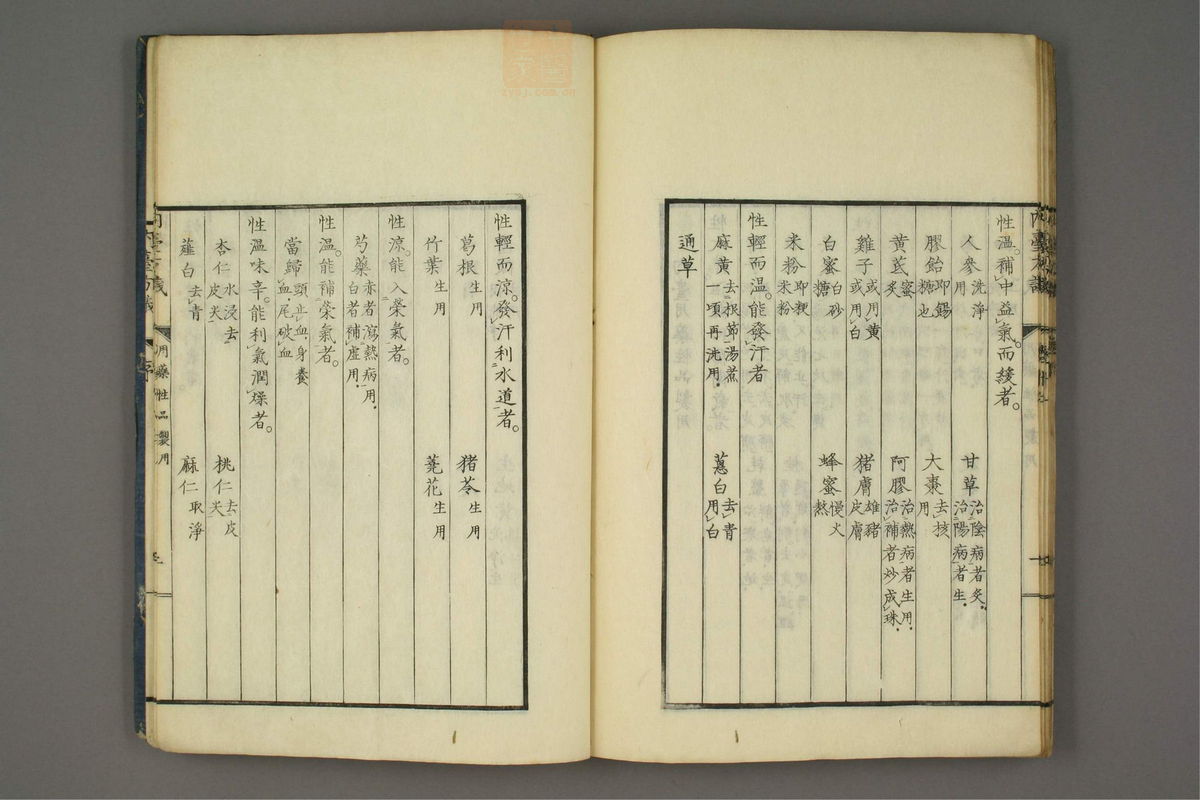 性溫。補中益氣。而緩者。
人參洗淨用 甘草治陰病者炙治陽病者生
膠飴即錫糖也 大棗去核用
黄芪蜜炙 阿膠治熱病者生用治補者炒成珠
雞子或用黄或用白 猪膚雄豬皮膚
白蜜白砂糖 蜂蜜慢火熬
米粉即粳米粉
性輕而溫。能發汗者
麻黄去根節湯煮一頃再洗用 蔥白去青用白
通草
性輕而涼。發汗利水道者。
葛根生用 猪苓生用
竹葉生用 蕘花生用
性涼。能入榮氣者。
芍藥赤者瀉熱病用白者補虛用
性溫。能補榮氣者。
當歸頭止血身養血尾破血
性溫味辛。能利氣潤燥者。
杏仁水浸去皮尖 桃仁去皮尖
薤白去青 麻仁取淨
用藥性品製用